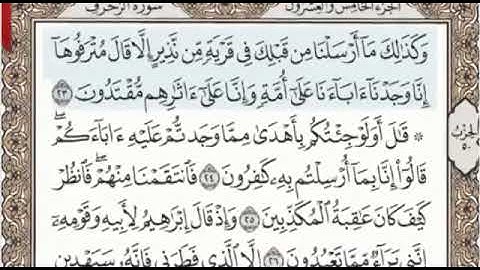 الجزء الخامس والعشرون
سورة الزخرف
وَكَذَٰلِكَ مَآ أَرْسَلْنَا مِن قَبْلِكَ فِى قَرْيَةٍ مِّن نَّذِيرٍ إِلَّا قَالَ مُتْرَفُوهَآ
إِنَّا وَجَدْنَآ ءَابَآءَنَا عَلَىٰٓ أُمَّةٍ وَإِنَّا عَلَىٰٓ ءَاثَٰرِهِم مُّقْتَدُونَ ٢٣
۞ قَٰلَ أَوَلَوْ جِئْتُكُم بِأَهْدَىٰ مِمَّا وَجَدتُّمْ عَلَيْهِ ءَابَآءَكُمْ ۖ
قَالُوٓا۟ إِنَّا بِمَآ أُرْسِلْتُم بِهِۦ كَٰفِرُونَ ٢٤ فَٱنتَقَمْنَا مِنْهُمْ ۖ فَٱنظُرْ
كَيْفَ كَانَ عَٰقِبَةُ ٱلْمُكَذِّبِينَ ٢٥ وَإِذْ قَالَ إِبْرَٰهِيمُ لِأَبِيهِ وَقَوْمِهِۦٓ
إِنَّنِى بَرَآءٌ مِّمَّا تَعْبُدُونَ ٢٦ إِلَّا ٱلَّذِى فَطَرَنِى فَإِنَّهُۥ سَيَهْدِينِ
الحزب
٥٠